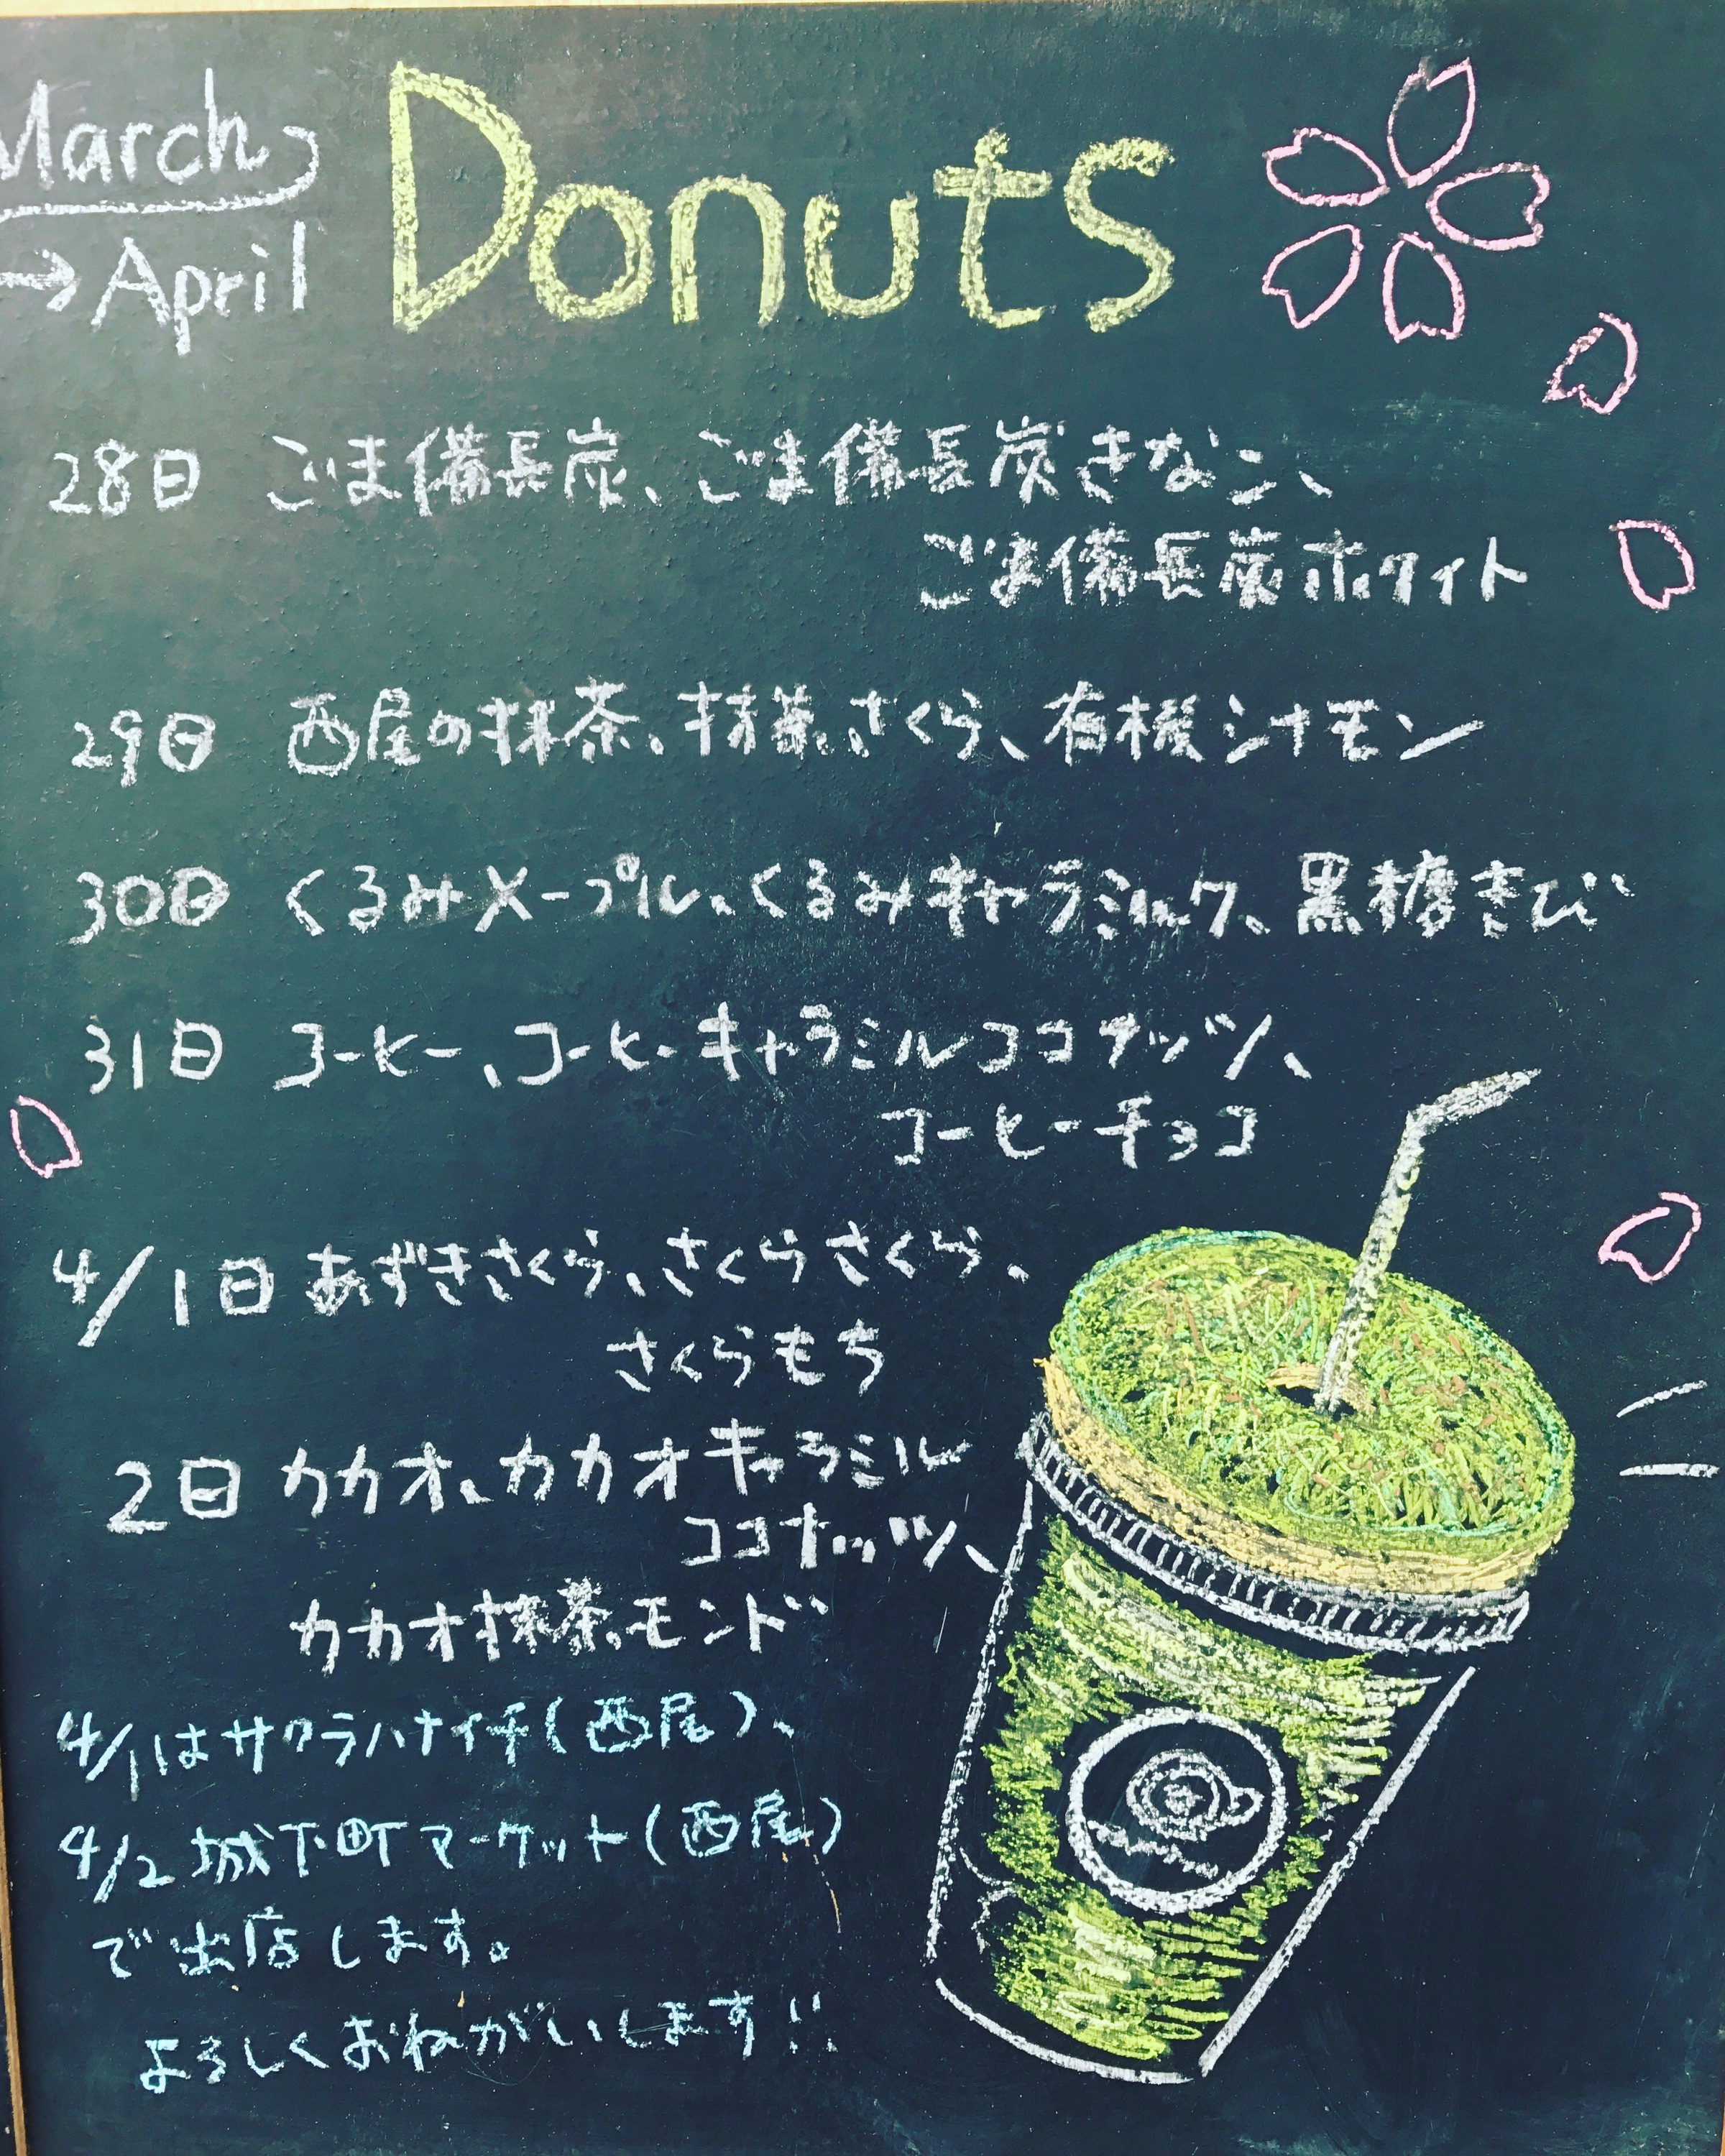 March
→April
Donuts
28日 ごま備長炭、ごま備長炭きなこ、
ごま備長炭ホワイト
29日 西尾の抹茶、抹茶さくら、有機シナモン
30日 くるみメープル、くるみキャラミルク、黒糖きび
31日 コーヒー、コーヒーキャラミルココナッツ、
コーヒーチョコ
4/1日 あずきさくら、さくらさくら、
さくらもち
2日 カカオ、カカオキャラミル
ココナッツ、
カカオ抹茶モンド
4/1はサクラハナイチ(西尾)、
4/2 城下町マーケット(西尾)
で出店します。
よろしくおねがいします!!